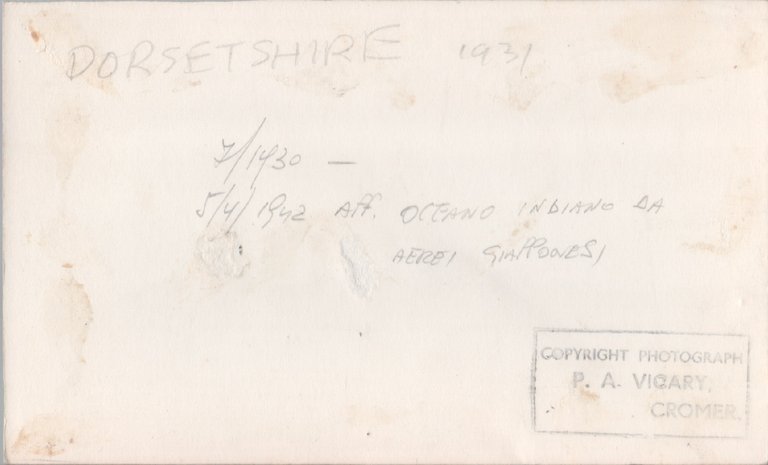 DORSETSHIRE 1931
7/1930 —
5/4/1942 Aff. OCEANO INDIANO DA
AEREI GIAPPONESI
COPYRIGHT PHOTOGRAPH
P. A. VICARY,
CROMER.